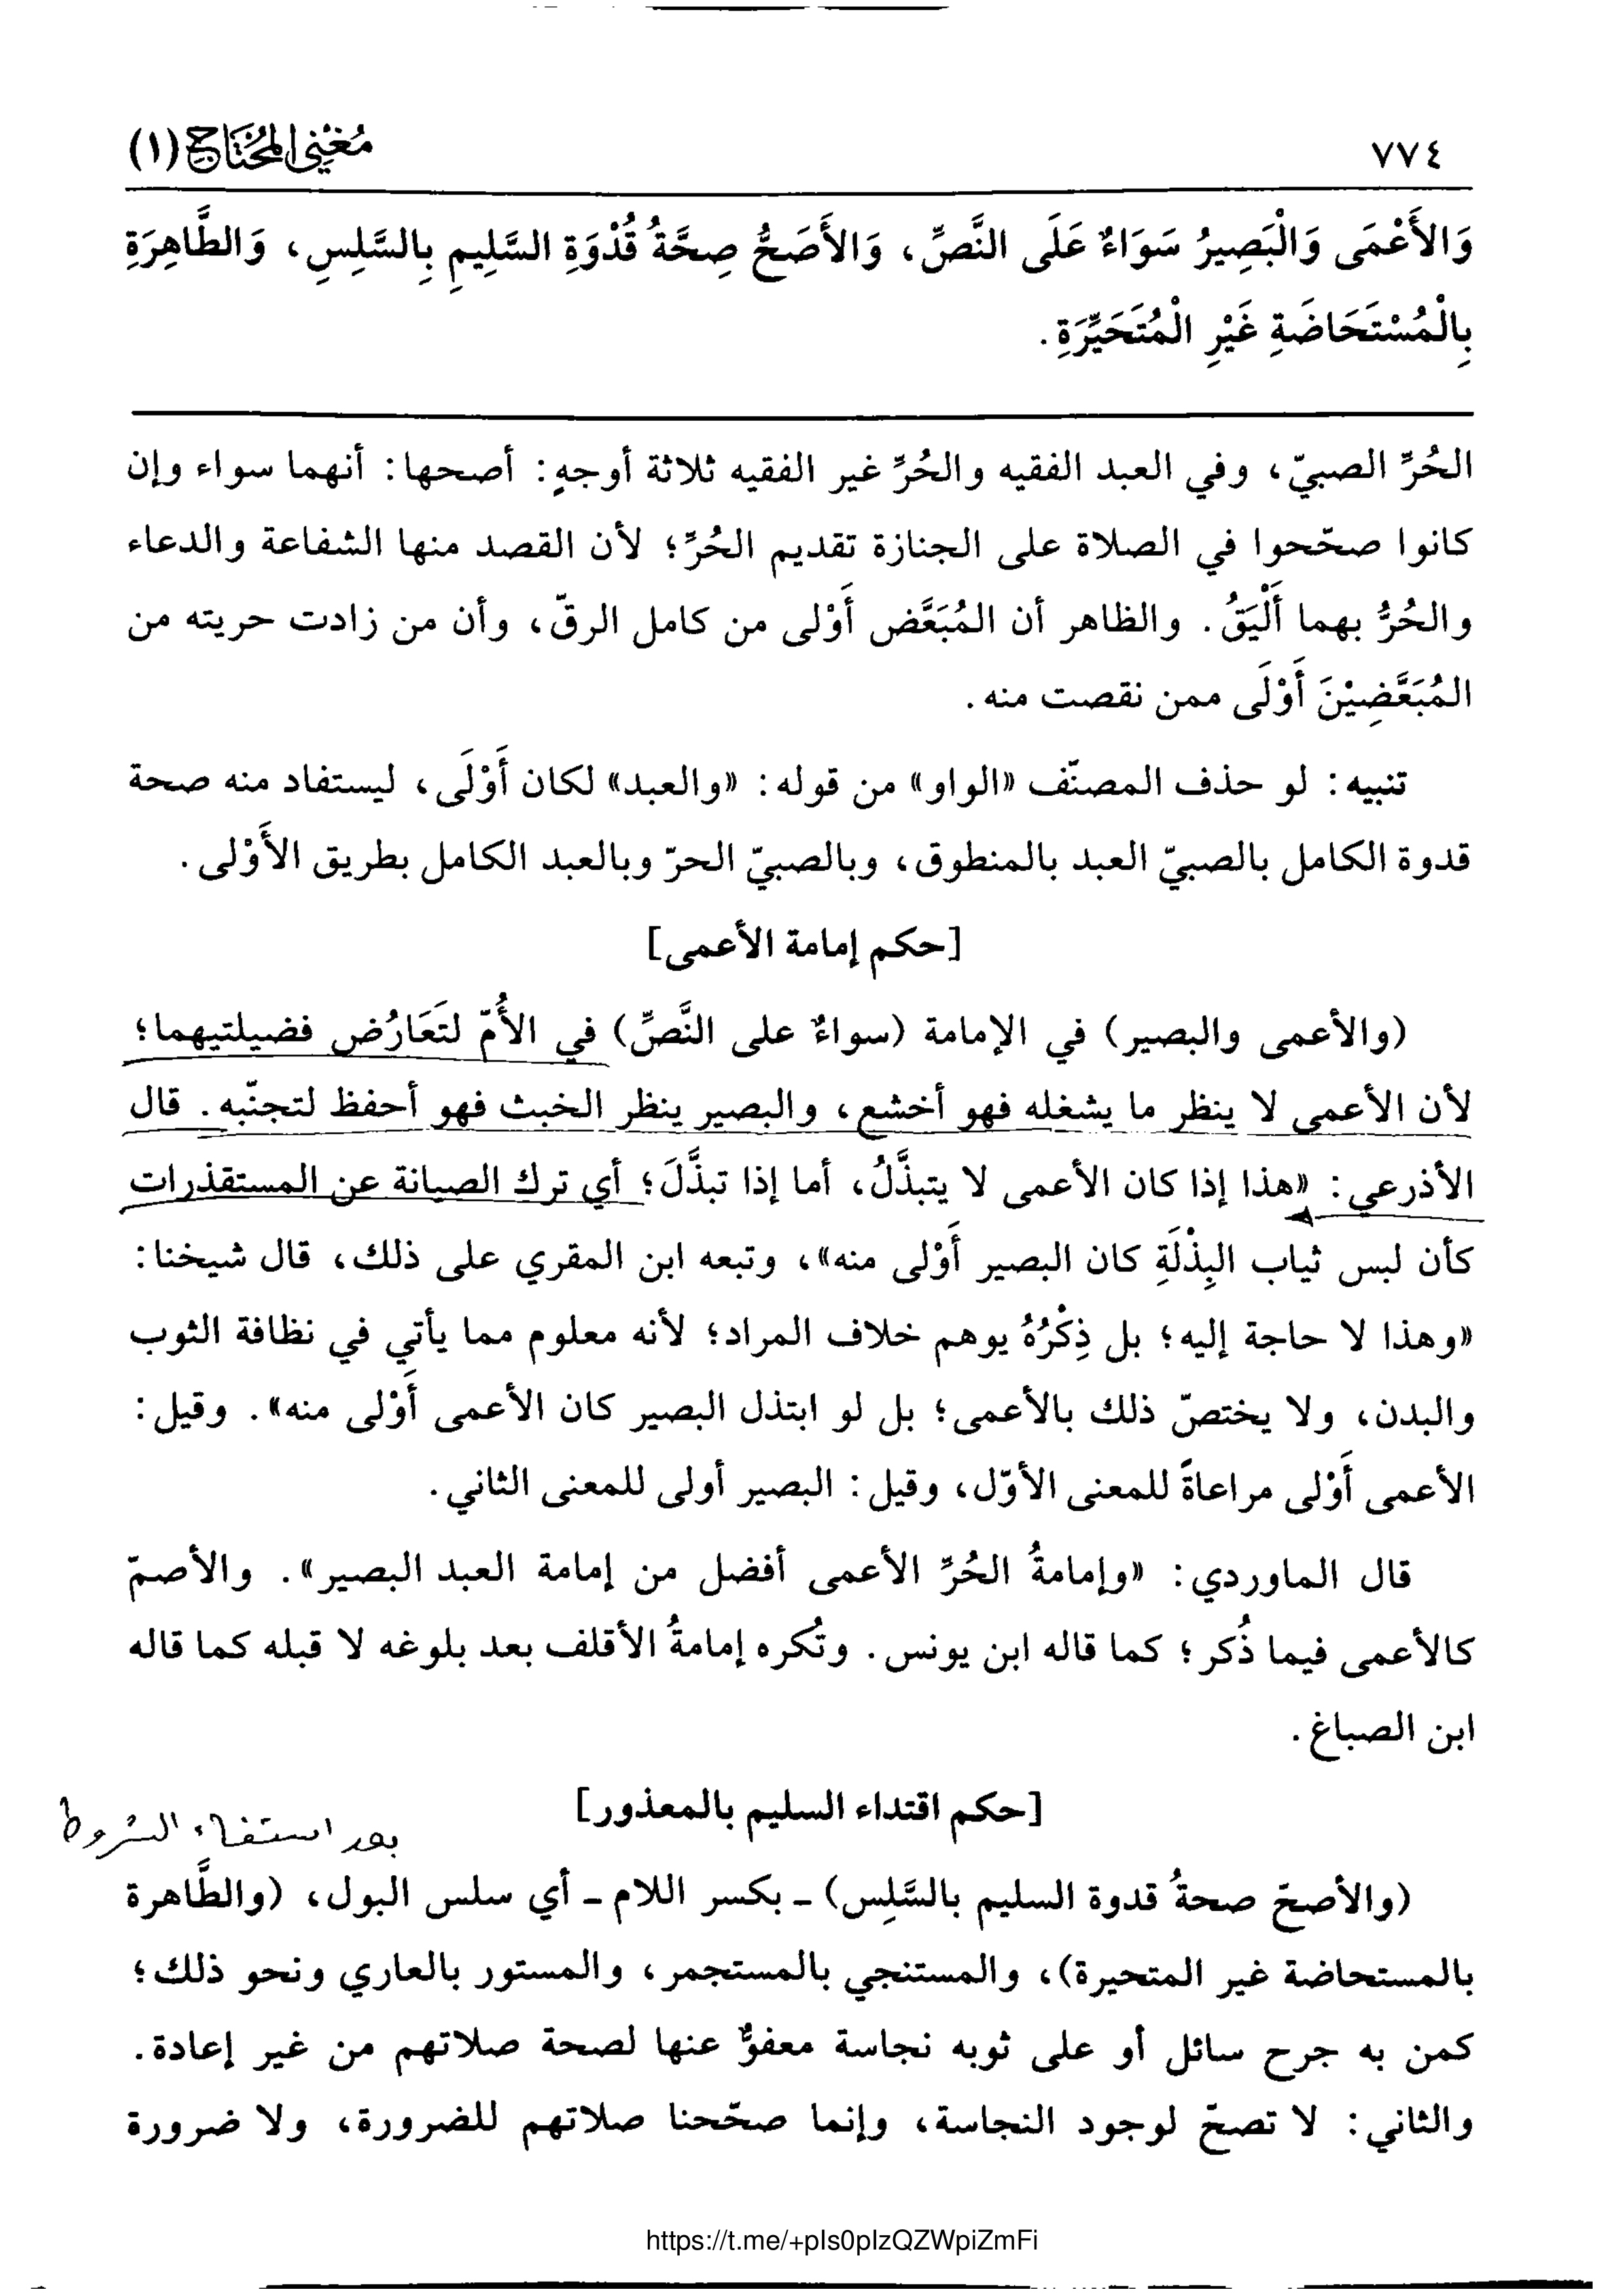 ٧٧٤ مُغْنِي المُحْتَاج (١)
وَالأَعْمَى وَالْبَصِيرُ سَوَاءٌ عَلَى النَّصِّ، وَالأَصَحُّ صِحَّةُ قُدْوَةِ السَّلِيمِ بِالسَّلِسِ، وَالطَّاهِرَةِ
بِالْمُسْتَحَاضَةِ غَيْرِ الْمُتَحَيِّرَةِ.
الحُرِّ الصبيّ، وفي العبد الفقيه والحُرِّ غير الفقيه ثلاثة أوجهٍ: أصحها: أنهما سواء وإن
كانوا صحّحوا في الصلاة على الجنازة تقديم الحُرِّ؛ لأن القصد منها الشفاعة والدعاء
والحُرُّ بهما أَلْيَقُ. والظاهر أن المُبَعَّض أَوْلى من كامل الرقّ، وأن من زادت حريته من
المُبَعَّضِيْنَ أَوْلَى ممن نقصت منه.
تنبيه: لو حذف المصنّف «الواو» من قوله: «والعبد» لكان أَوْلَى، ليستفاد منه صحة
قدوة الكامل بالصبيّ العبد بالمنطوق، وبالصبيّ الحرّ وبالعبد الكامل بطريق الأَوْلى.
[حكم إمامة الأعمى]
(والأعمى والبصير) في الإمامة (سواءٌ على النَّصِّ) في الأُمّ لتَعَارُض فضيلتيهما؛
لأن الأعمى لا ينظر ما يشغله فهو أخشع، والبصير ينظر الخبث فهو أحفظ لتجنّبه. قال
الأذرعي: «هذا إذا كان الأعمى لا يتبذَّلُ، أما إذا تبذَّلَ؛ أي ترك الصيانة عن المستقذرات
كأن لبس ثياب البِذْلَةِ كان البصير أَوْلى منه»، وتبعه ابن المقري على ذلك، قال شيخنا:
«وهذا لا حاجة إليه؛ بل ذِكْرُهُ يوهم خلاف المراد؛ لأنه معلوم مما يأتي في نظافة الثوب
والبدن، ولا يختصّ ذلك بالأعمى؛ بل لو ابتذل البصير كان الأعمى أَوْلى منه». وقيل:
الأعمى أَوْلى مراعاةً للمعنى الأوّل، وقيل: البصير أولى للمعنى الثاني.
قال الماوردي: «وإمامةُ الحُرِّ الأعمى أفضل من إمامة العبد البصير». والأصمّ
كالأعمى فيما ذُكر؛ كما قاله ابن يونس. وتُكره إمامةُ الأقلف بعد بلوغه لا قبله كما قاله
ابن الصباغ.
[حكم اقتداء السليم بالمعذور]
بعد استفاء الشروط
(والأصحّ صحةُ قدوة السليم بالسَّلِس) ـ بكسر اللام ـ أي سلس البول، (والطَّاهرة
بالمستحاضة غير المتحيرة)، والمستنجي بالمستجمر، والمستور بالعاري ونحو ذلك؛
كمن به جرح سائل أو على ثوبه نجاسة معفوٌّ عنها لصحة صلاتهم من غير إعادة.
والثاني: لا تصحّ لوجود النجاسة، وإنما صحّحنا صلاتهم للضرورة، ولا ضرورة
https://t.me/+pIs0pIzQZWpiZmFi